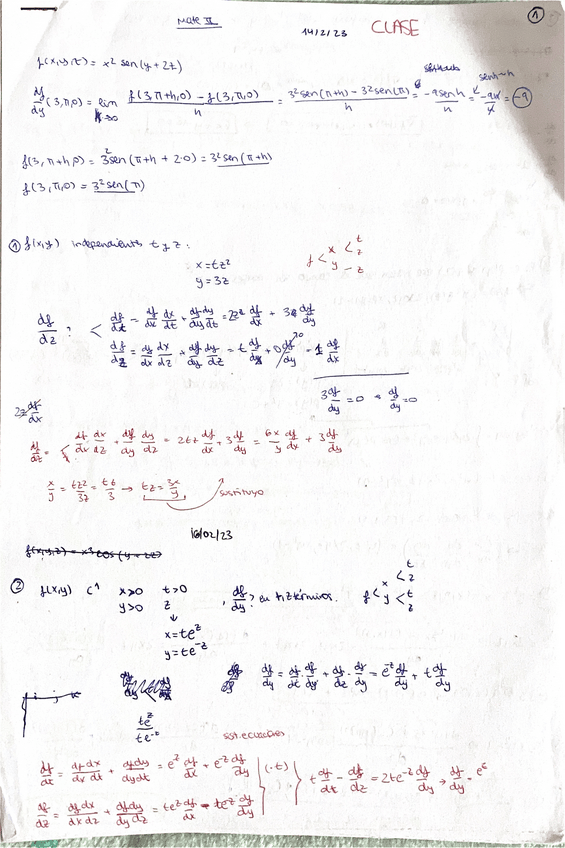 Mate II
14/2/23 CLASE 1
f(x,y,z) = x² sen(y+2z)
df/dy (3,π,0) = lim h→0 (f(3,π+h,0) - f(3,π,0))/h = (3² sen(π+h) - 3² sen(π))/h = (-9 sen h)/h = -9h/h = -9
senh~h
f(3,π+h,0) = 3² sen(π+h+2·0) = 3² sen(π+h)
f(3,π,0) = 3² sen(π)
① f(x,y) independients t y z:
x = tz²
y = 3z
f < x < t z
y - z
df/dz ?
df/dt = df/dx dx/dt + df/dy dy/dt = df/dx + 3 df/dy
df/dz = df/dx dx/dz + df/dy dy/dz = t df/dx + 0 df/dy = df/dx
3 df/dy = 0 df/dy = 0
2z df/dx
df/dz = df/dx dx/dz + df/dy dy/dz = 2tz df/dx + 3 df/dy = 6x/y df/dx + 3 df/dy
x/y = tz²/3z = tz/3 → tz = 3x/y sustituyo
16/02/23
f(x,y,z) = x³ cos(y+2z)
② f(x,y) C¹ x>0 t>0 , df/dy? en t,z términos. f < x < t z
y>0 z y < t z
↓
x = te^z
y = te^-z
df/dy = df/dt · dt/dy + df/dz · dz/dy = e^-z df/dy + t df/dy
te^z / te^-z
sist. ecuaciones
df/dt = df/dx dx/dt + df/dy dy/dt = e^z df/dx + e^-z df/dy (·t)
df/dz = df/dx dx/dz + df/dy dy/dz = te^z df/dx - te^-z df/dy
t df/dt - df/dz = 2te^-z df/dy → df/dy = e^